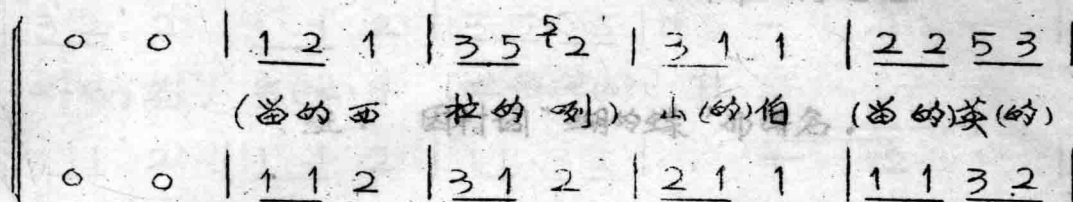 0 0 | 1 2 1 | 3 5 5 2 | 3 1 1 | 2 2 5 3 |
(当的西 拉的咧) 山(的)伯 (当的)英(的)
0 0 | 1 1 2 | 3 1 2 | 2 1 1 | 1 1 3 2 |